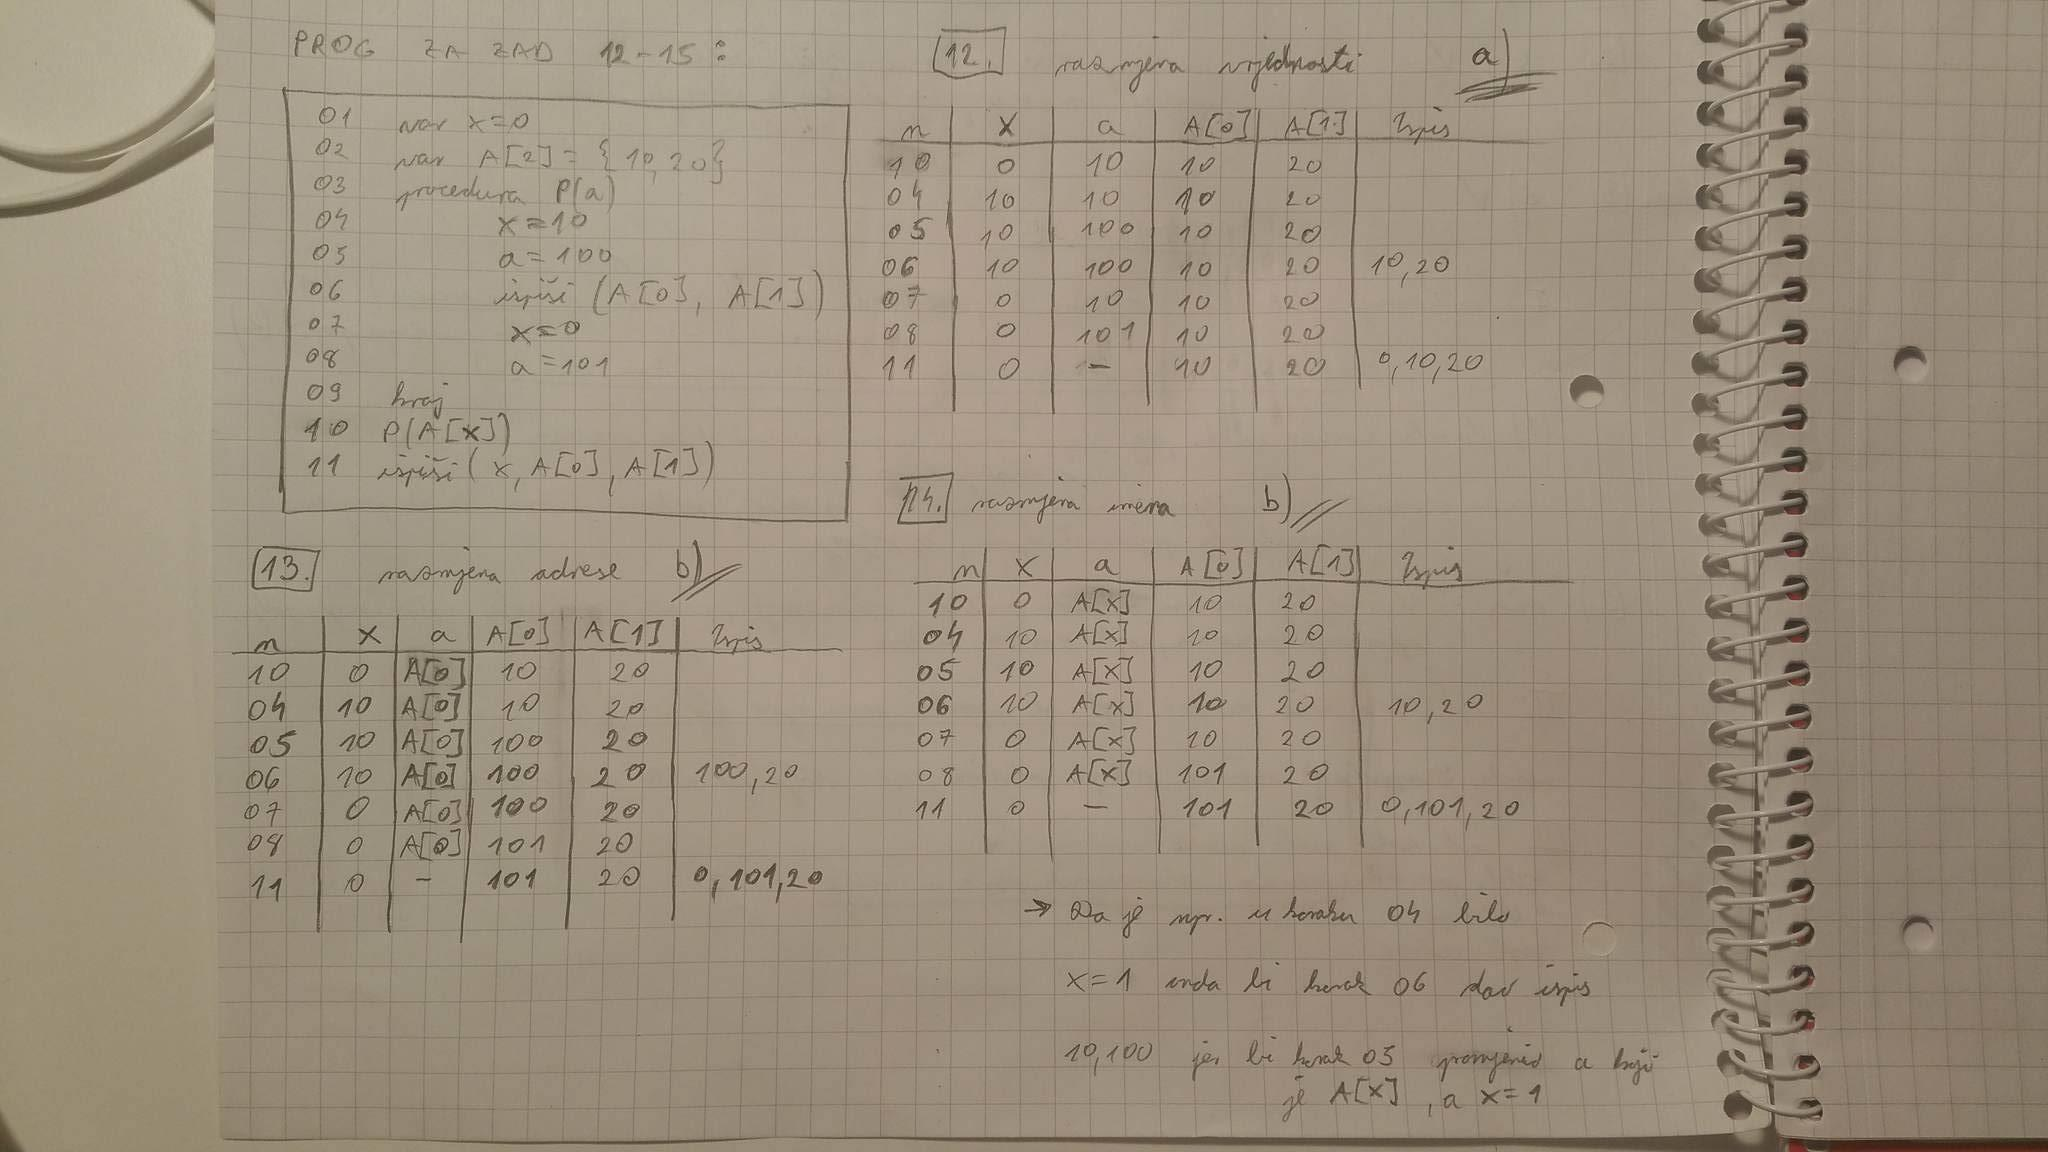 PROG ZA ZAD 12-15:
01 var x=0
02 var A[2] = {10,20}
03 procedura P(a)
04 x=10
05 a=100
06 ispiši (A[0], A[1])
07 x=0
08 a=101
09 kraj
10 P(A[x])
11 ispiši (x, A[0], A[1])
12. razmjena vrijednosti a)
n x a A[0] A[1] Ispis
10 0 10 10 20
04 10 10 10 20
05 10 100 10 20
06 10 100 10 20 10,20
07 0 10 10 20
08 0 101 10 20
11 0 – 10 20 0,10,20
13. razmjena adrese b)
n x a A[0] A[1] Ispis
10 0 A[0] 10 20
04 10 A[0] 10 20
05 10 A[0] 100 20
06 10 A[0] 100 20 100,20
07 0 A[0] 100 20
08 0 A[0] 101 20
11 0 – 101 20 0,101,20
14. razmjena imena b)
n x a A[0] A[1] Ispis
10 0 A[x] 10 20
04 10 A[x] 10 20
05 10 A[x] 10 20
06 10 A[x] 10 20 10,20
07 0 A[x] 10 20
08 0 A[x] 101 20
11 0 – 101 20 0,101,20
→ Da je npr. u koraku 04 bilo
x=1 onda bi korak 06 dao ispis
10,100 jer bi korak 05 promjenio a koji
je A[x], a x=1